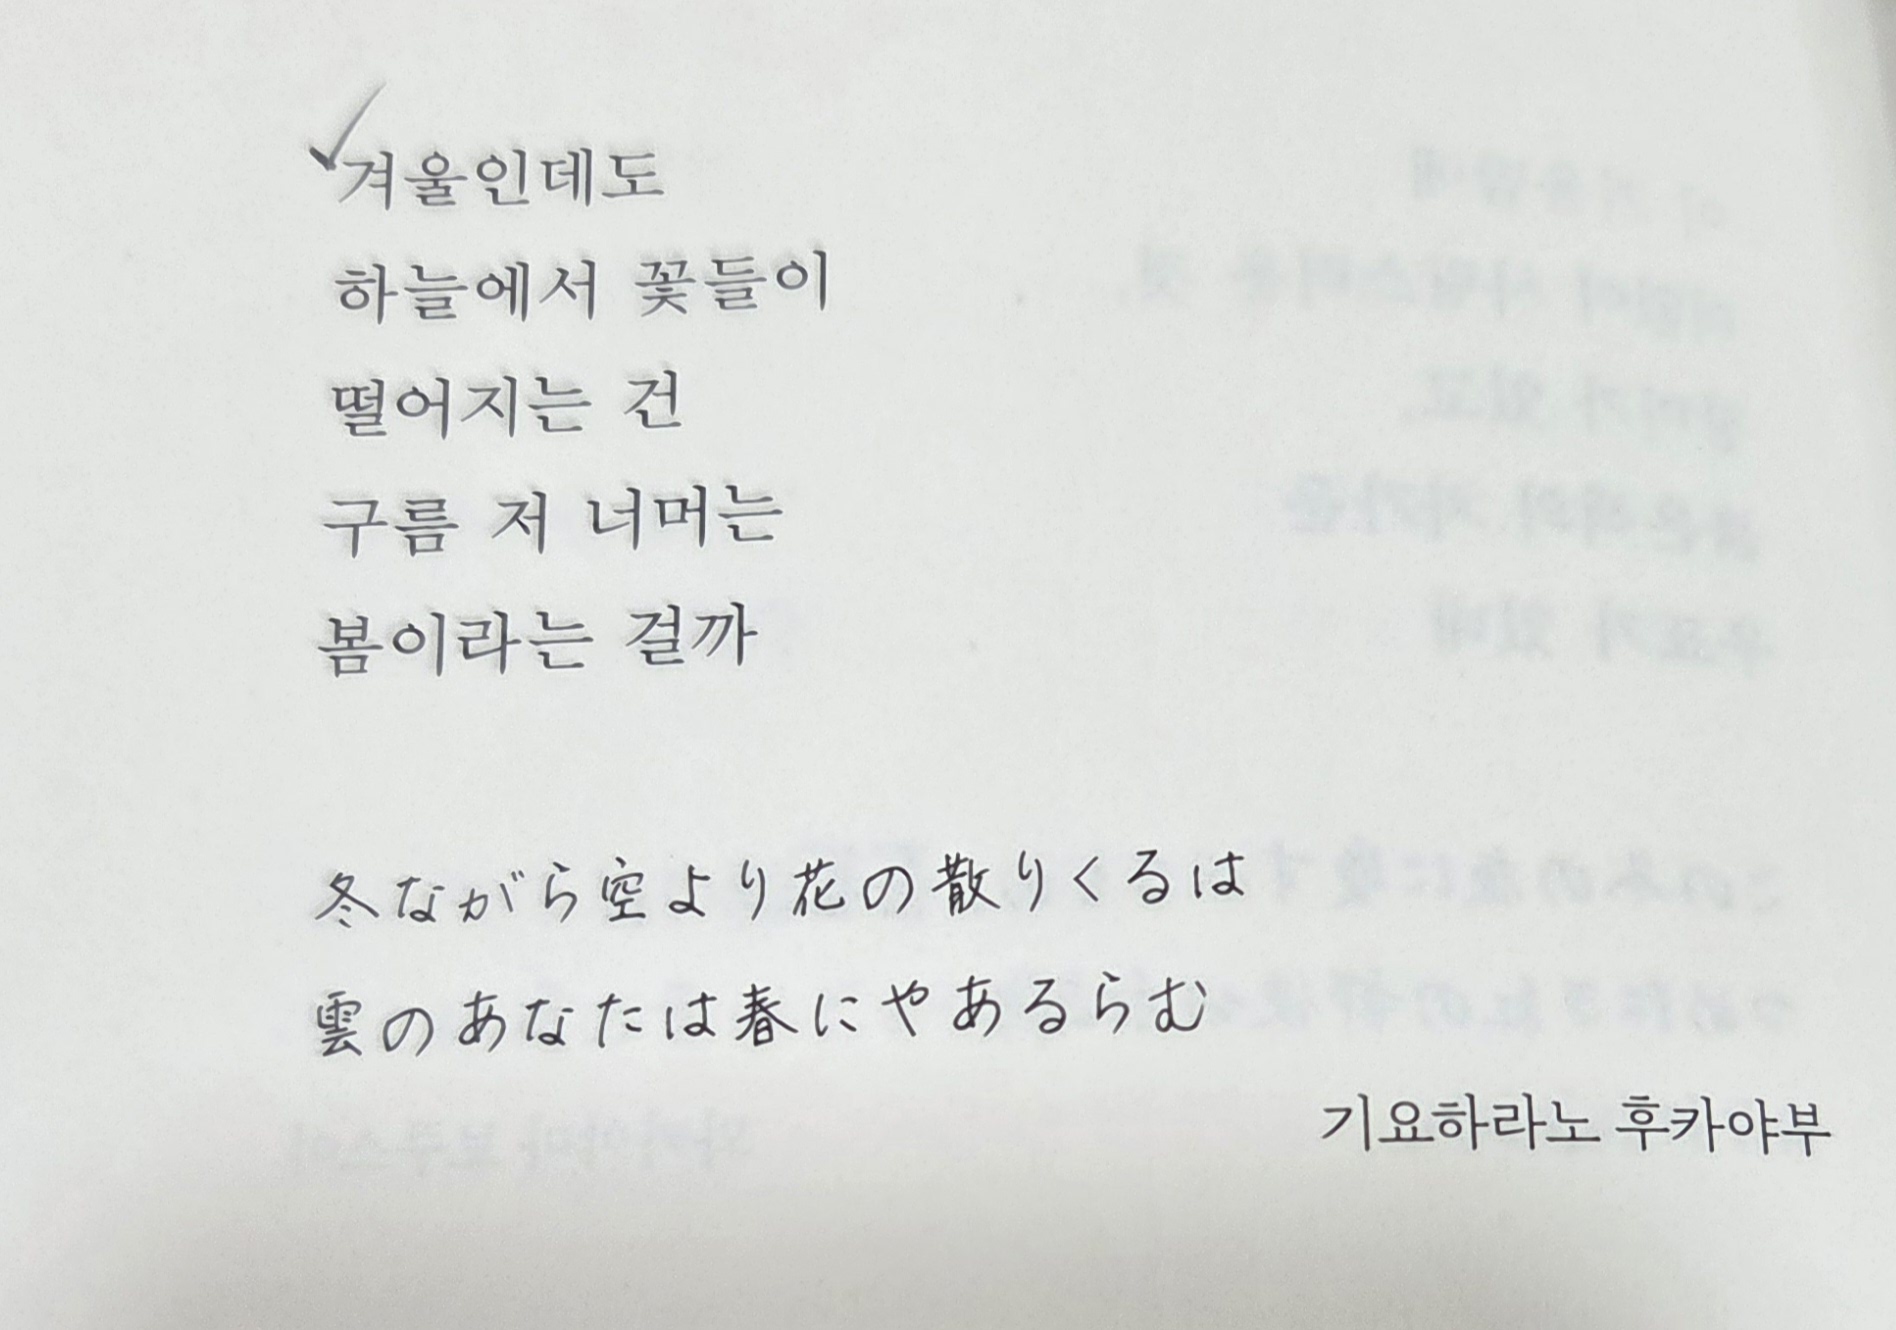 겨울인데도
하늘에서 꽃들이
떨어지는 건
구름 저 너머는
봄이라는 걸까
冬ながら空より花の散りくるは
雲のあなたは春にやあるらむ
기요하라노 후카야부